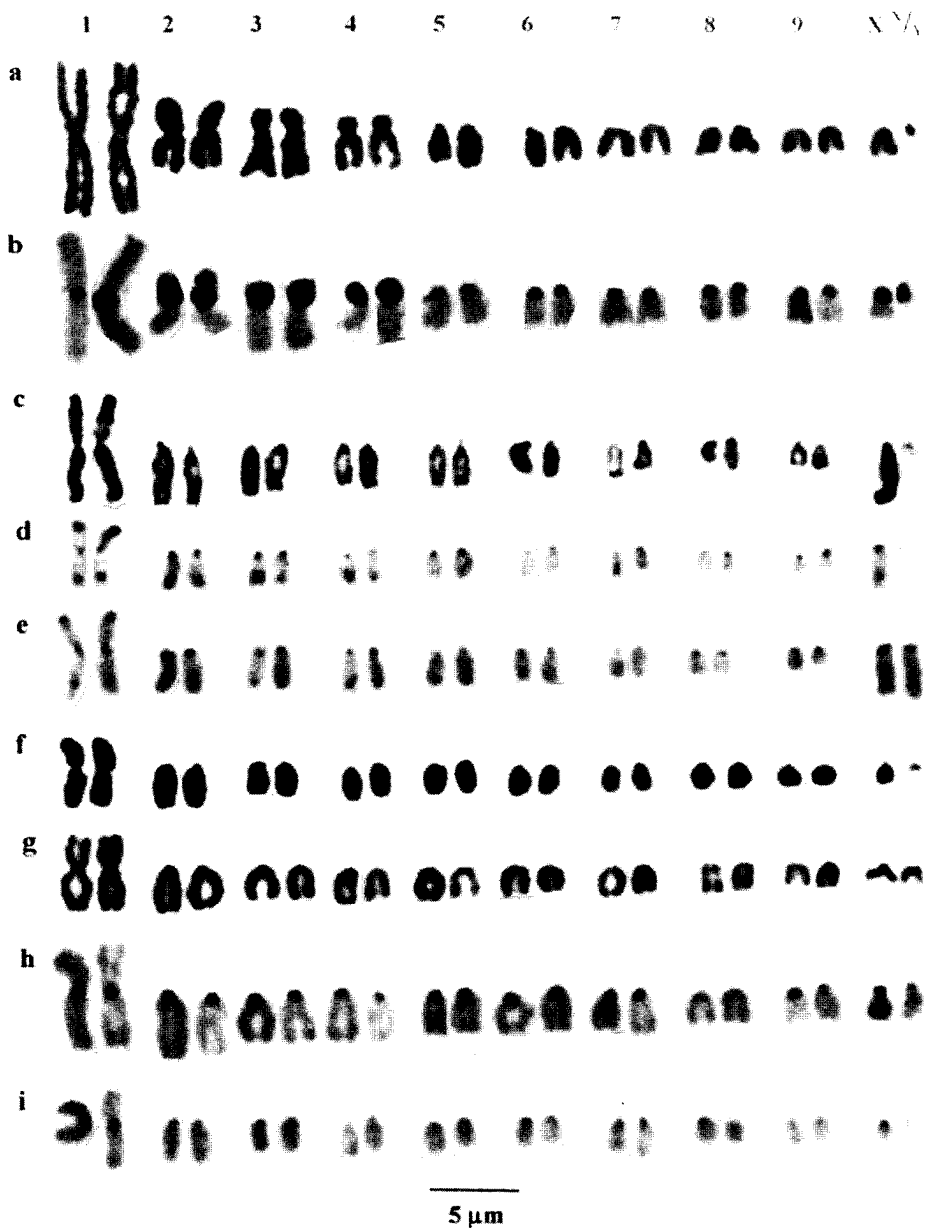 1 2 3 4 5 6 7 8 9 X Y/
a
b
c
d
e
f
g
h
i
5 µm